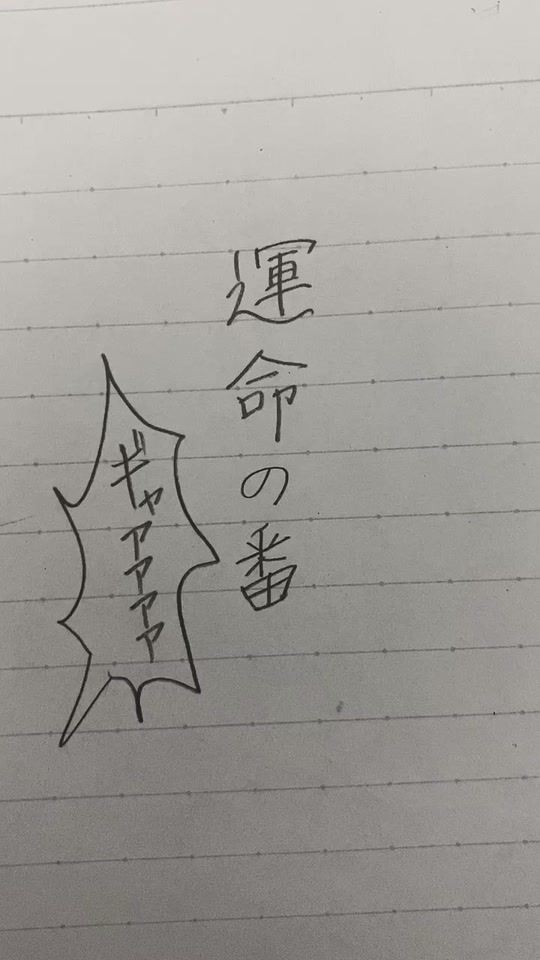 運命の番
ギャアアアア